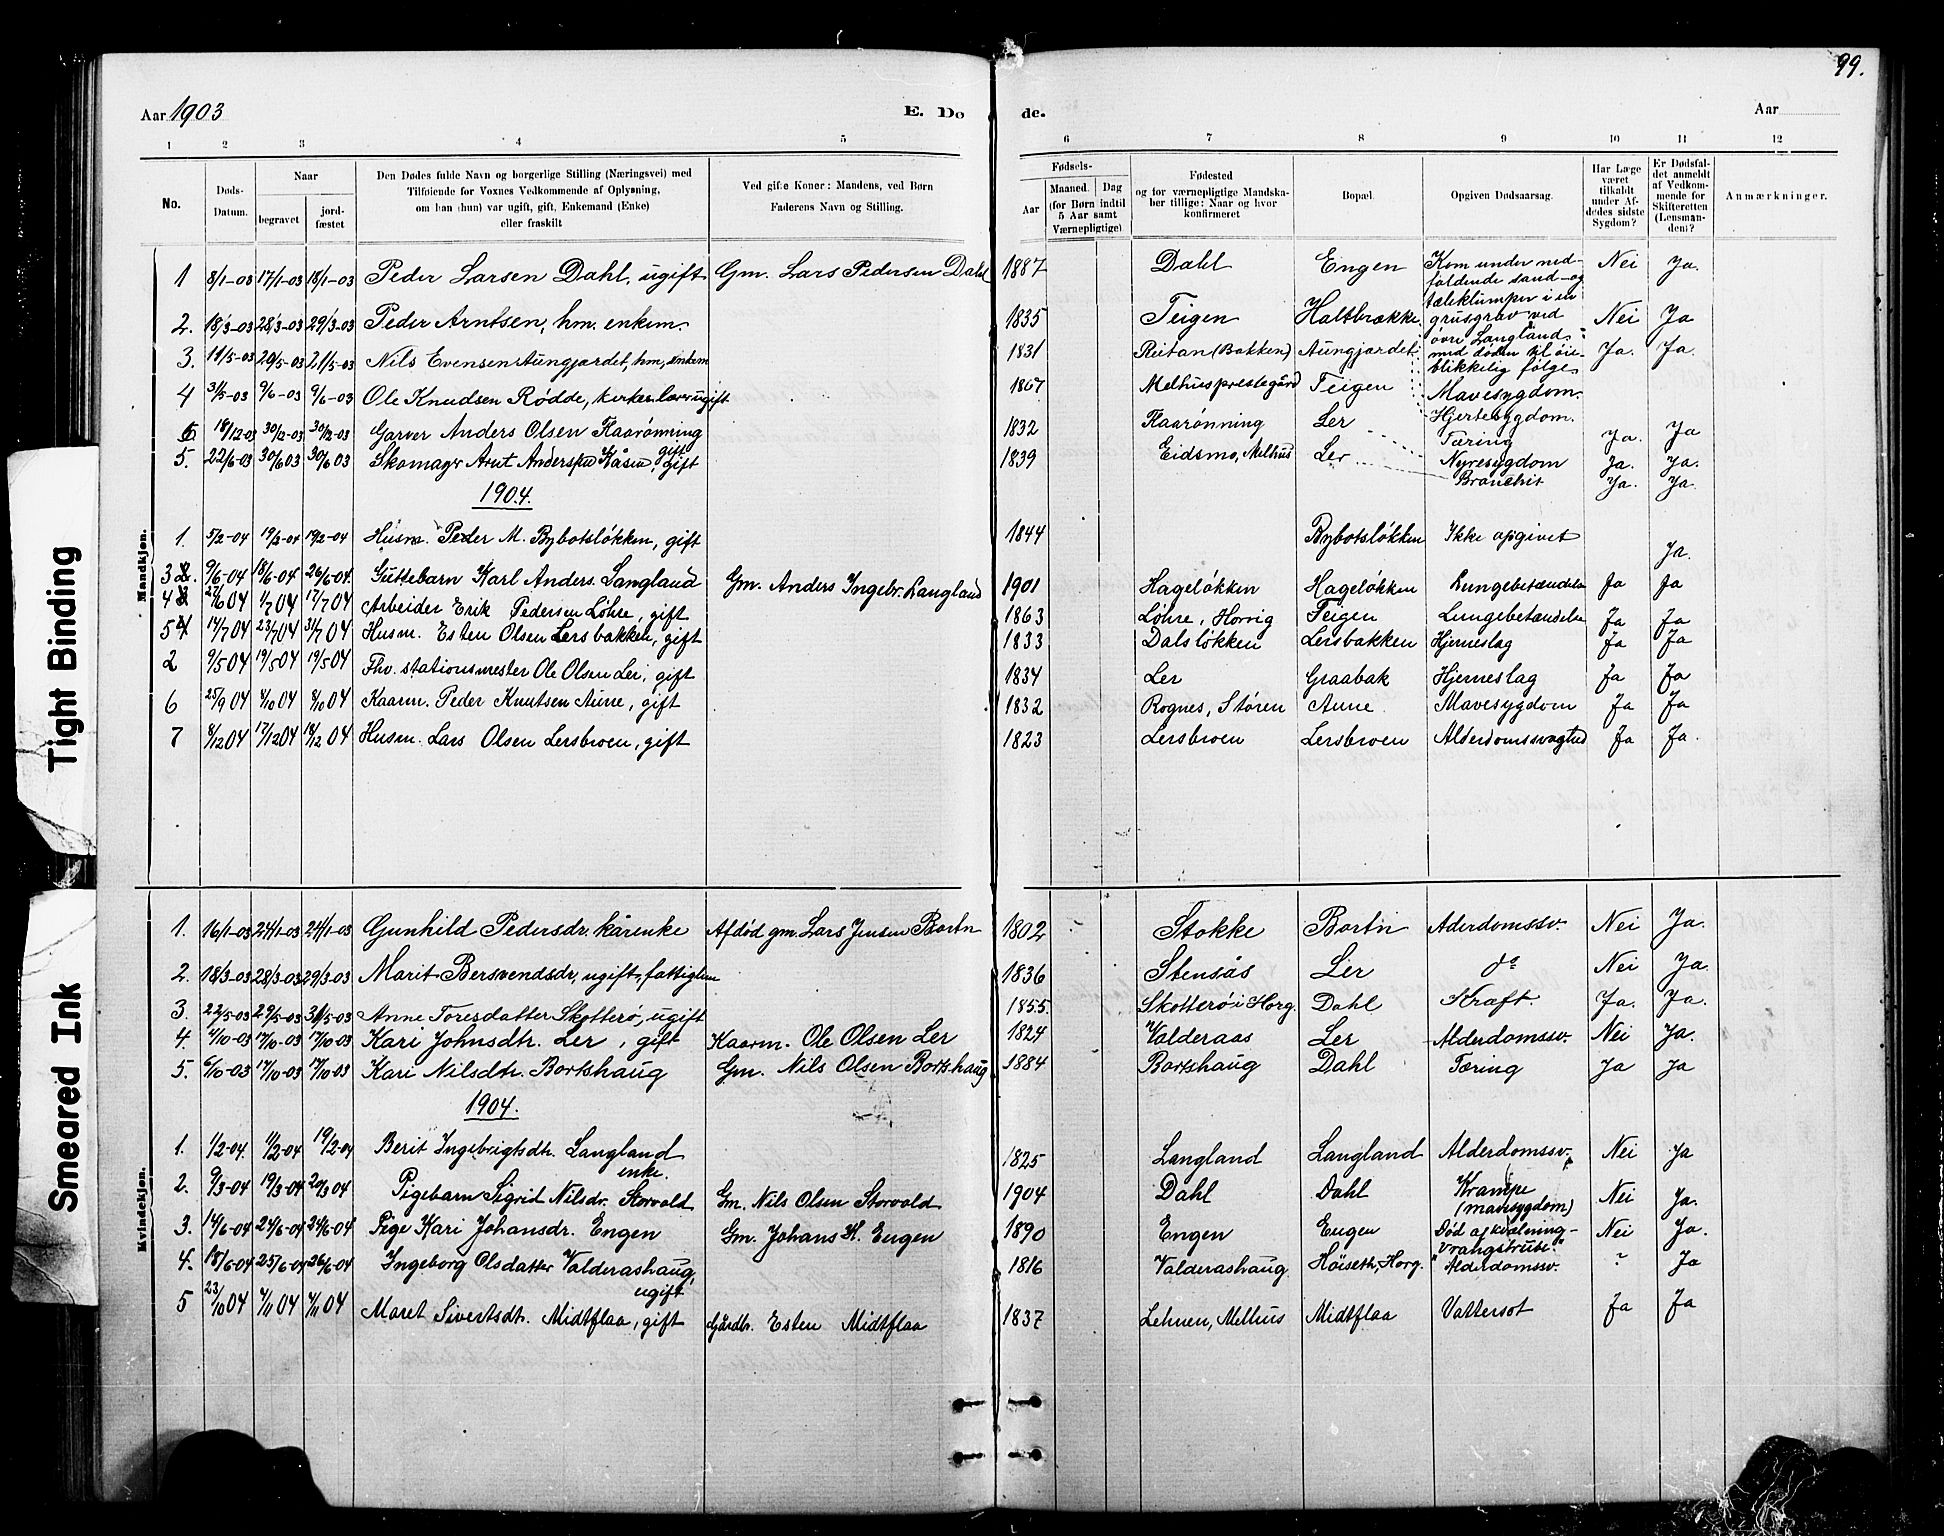 99.
Aar 1903 E. Do de. Aar
1 2 3 4 5 6 7 8 9 10 11 12
No.
Døds-Datum.
Naar
begravet
jord-fæstet
Den Dødes fulde Navn og borgerlige Stilling (Næringsvei) med
Tilføiende for Voxnes Vedkommende af Oplysning,
om han (hun) var ugift, gift, Enkemand (Enke)
eller fraskilt
Ved gifte Koner: Mandens, ved Børn
Faderens Navn og Stilling.
Fødsels-
Aar
Maaned. Dag
(for Børn indtil
5 Aar samt
Værnepligtige)
Fødested
og for værnepligtige Mandska-
ber tillige: Naar og hvor
konfirmeret
Bopæl.
Opgiven Dødsaarsag.
Har Læge
været
tilkaldt
under Af-
dedes sidste
Sygdom?
Er Dødsfal-
det anmeldt
af Vedkom-
mende for
Skifteretten
(Lensman-
den)?
Anmærkninger.
Mandkjøn.
1 8/1-03 17/1-03 18/1-03 Peder Larsen Dahl, ugift Gm. Lars Pedersen Dahl 1887 Dahl Engen Kom under ned-
faldende sand- og
tæleklumper i en
grusgrav ved
øvre Langland
med døden til øie-
blikkelig følge Nei Ja.
2. 18/3-03 28/3-03 29/3-03 Peder Arntsen, hm. enkem. 1835 Teigen Haltbrække. Mavesygdom. Nei Ja
3. 11/5-03 20/5-03 21/5-03 Nils Evensen Aungjardet, hm, enkem 1831 Reitan (Bakken) Aungjardet Hjertesygdom. Ja. Ja.
4 31/5-03 9/6-03 9/6-03 Ole Knudsen Rødde, kirkes. lærer ugift 1867 Melhus prestegård Teigen Tæring Ja. Ja
6 18/12-03 30/12-03 30/12-03 Garver Anders Olsen Flaarønning gift 1832 Flaarønning Ler Nyresygdom Ja. Ja.
5. 22/6-03 30/6 03 30/6 03 Skomager Arnt Andersen Kåsen, gift 1839 Eidsmo, Melhus Ler Bronchit Ja. Ja.
1904.
1. 5/2-04 19/2-04 19/2-04 Husm. Peder M. Bybotsløkken, gift 1844 Bybotsløkken Ikke opgivet Ja.
3 9/6-04 18/6-04 26/6-04. Guttebarn Karl Anders. Langland Gm. Anders Ingebr. Langland 1901 Hageløkken Hageløkken Lungebetændelse Ja Ja
4 27/6 04 1/7 04 17/7 04 Arbeider Erik Pedersen Løhre, gift 1863 Løhre, Horrig Teigen Lungebetændelse Ja Ja
5 14/7 04 23/7 04 31/7 04 Husm. Esten Olsen Lersbakken, gift 1833 Dalsløkken Lersbakken Hjerneslag Ja Ja
2 9/5 04 19/5 04 19/5 04 Fhv. stationsmester Ole Olsen Ler, gift 1834 Ler Graabak Hjerneslag Ja Ja
6 25/9 04 8/10 04 8/10 04 Kaarm. Peder Knutsen Aune, gift 1832 Rognes, Støren Aune Mavesygdom Ja Ja
7 8/12 04 17/12 04 18/12 04 Husm. Lars Olsen Lersbroen, gift 1823 Lersbroen Lersbroen Alderdomssvaghed Ja Ja.
Kvindekjøn.
1. 16/1-03 24/1-03 24/1-03 Gunhild Pedersdr. kårenke Afdød gm. Lars Jensen Bortn 1802 Stokke Bortn Aderdomssv. Nei Ja.
2. 18/3-03 28/3-03 29/3-03 Marit Bersvendsdr, ugift, fattiglem 1836 Stensås Ler do Nei Ja.
3. 22/5-03 29/5-03 31/5-03 Anne Toresdatter Skotterø, ugift 1855. Skotterø i Horg. Dahl Kræft. Ja. Ja.
4. 4/10-03 17/10-03 17/10-03 Kari Johnsdtr. Ler, gift Kaarm. Ole Olsen Ler 1824 Valderaas Ler Alderdomssv. Nei Ja.
5. 6/10-03 17/10-03 17/10-03 Kari Nilsdtr. Bortshaug Gm. Nils Olsen Bortshaug 1884 Bortshaug Dahl Tæring Ja Ja
1904.
1. 1/2-04 11/2-04 19/2-04 Berit Ingebrigtsdtr. Langland enke. 1825 Langland Langland Alderdomssv. Nei Ja
2. 9/3-04 19/3-04 20/3 04 Pigebarn Sigrid Nilsdr. Storvold Gm. Nils Olsen Storvold 1904 Dahl Dahl Krampe
(mavesygdom) Nei Ja.
3. 14/6-04 24/6-04 24/6-04 Pige Kari Johansdr. Engen Gm. Johans H. Engen 1890 Engen Engen Død af kvælning-
"Vrangstrube." Nei Ja.
4. 18/6-04 25/6-04 26/6-04 Ingeborg Olsdatter Valderashaug, ugift 1816 Valderashaug Høiseth, Horg. Alderdomssv. ? Ja
5 23/10 04 4/11 04 4/11 04 Maret Sivertsdtr. Midtflaa, gift Gårdbr. Esten Midtflaa 1837 Lehnen, Melhus Midtflaa Vattersot Ja Ja
Tight Binding
Smeared Ink